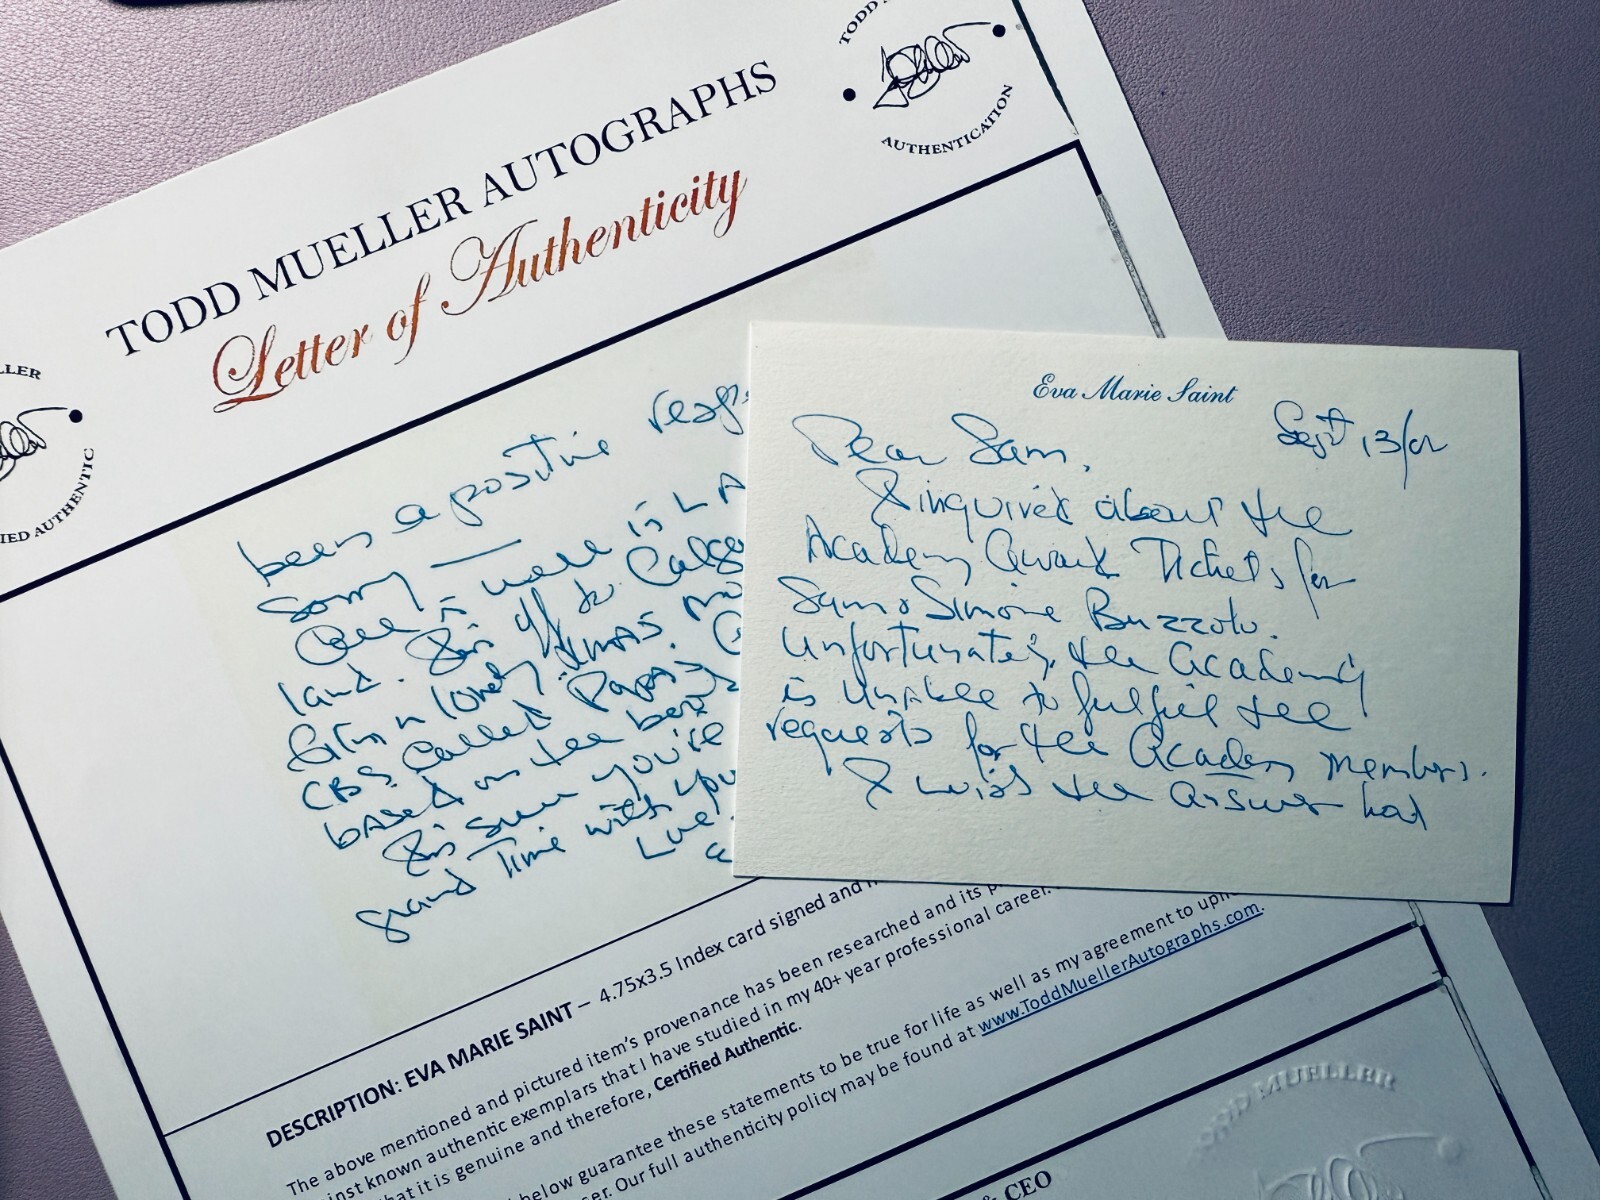 TODD MUELLER AUTOGRAPHS
Letter of Authenticity
TODD
AUTHENTICATION
LLER
IED AUTHENTIC
been a positive resp
Sorry —
All is well in L A
land. I'm off to Calga
film a lovely Xmas mo
CBS called "Papa's
based on the book
I'm sure you're
grand Time with you
Love
Eva Marie Saint
Sept 13/02
Dear Sam,
I inquired about the
Academy Award Tickets for
Sam & Simone Buzzoto.
Unfortunately, the Academy
is unable to fulfill the
requests for the Academy members.
I wish the answer had
DESCRIPTION: EVA MARIE SAINT – 4.75x3.5 Index card signed and
The above mentioned and pictured item's provenance has been researched and its
inst known authentic exemplars that I have studied in my 40+ year professional career.
hat it is genuine and therefore, Certified Authentic.
below guarantee these statements to be true for life as well as my agreement to uph
ser. Our full authenticity policy may be found at www.ToddMuellerAutographs.com.
& CEO
TODD MUELLER